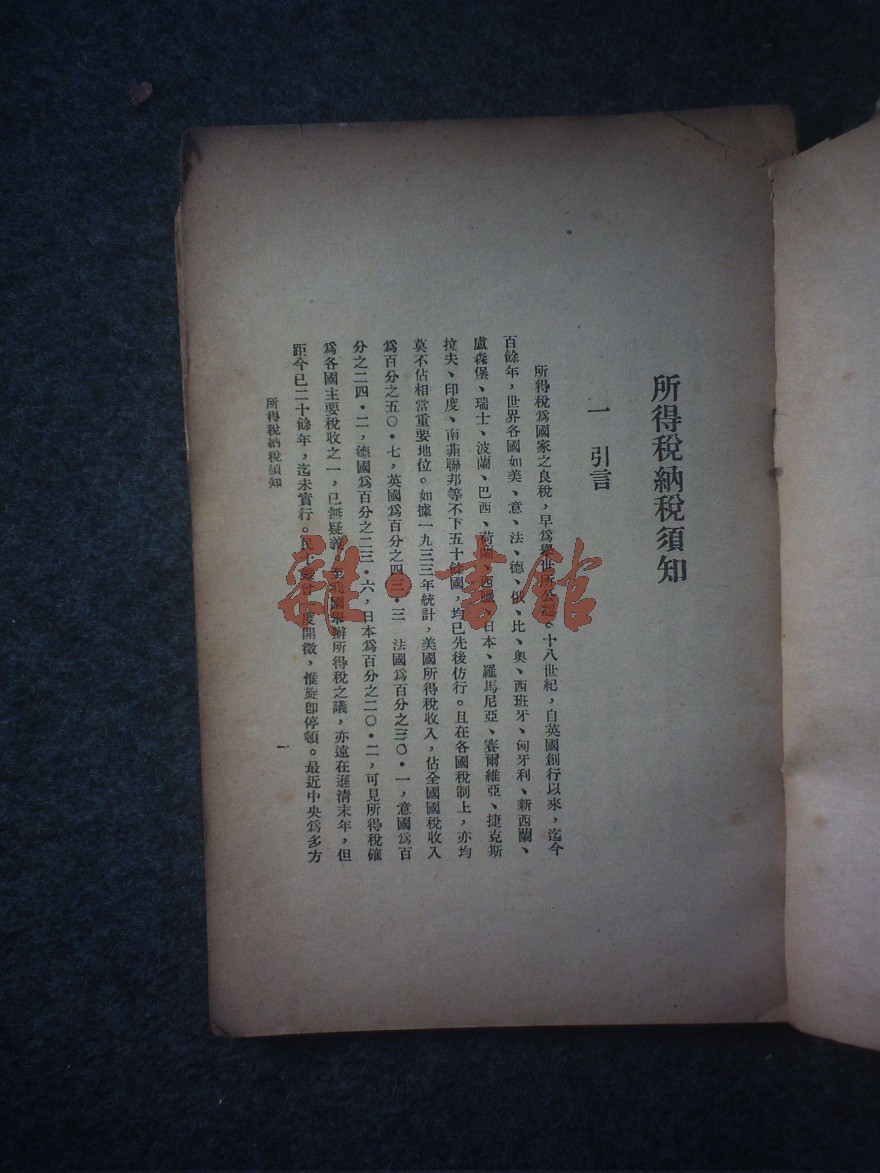 所得稅納稅須知
一　引言
所得稅爲國家之良稅，早爲舉世所公認。十八世紀，自英國創行以來，迄今
百餘年，世界各國如美、意、法、德、俄、比、奧、西班牙、匈牙利、新西蘭、
盧森堡、瑞士、波蘭、巴西、荷蘭、西臘、日本、羅馬尼亞、賽爾維亞、捷克斯
拉夫、印度、南菲聯邦等不下五十餘國，均已先後仿行。且在各國稅制上，亦均
莫不佔相當重要地位。如據一九三三年統計，美國所得稅收入，佔全國國稅收入
爲百分之五〇・七，英國爲百分之四三・三　法國爲百分之三〇・一，意國爲百
分之二四・二，德國爲百分之二三・六，日本爲百分之二〇・二，可見所得稅確
爲各國主要稅收之一，已無疑義。至我國舉辦所得稅之議，亦遠在遜清末年，但
距今已二十餘年，迄未實行。民十度開徵，惟旋卽停頓。最近中央爲多方
所得稅納稅須知
一
雜・書館